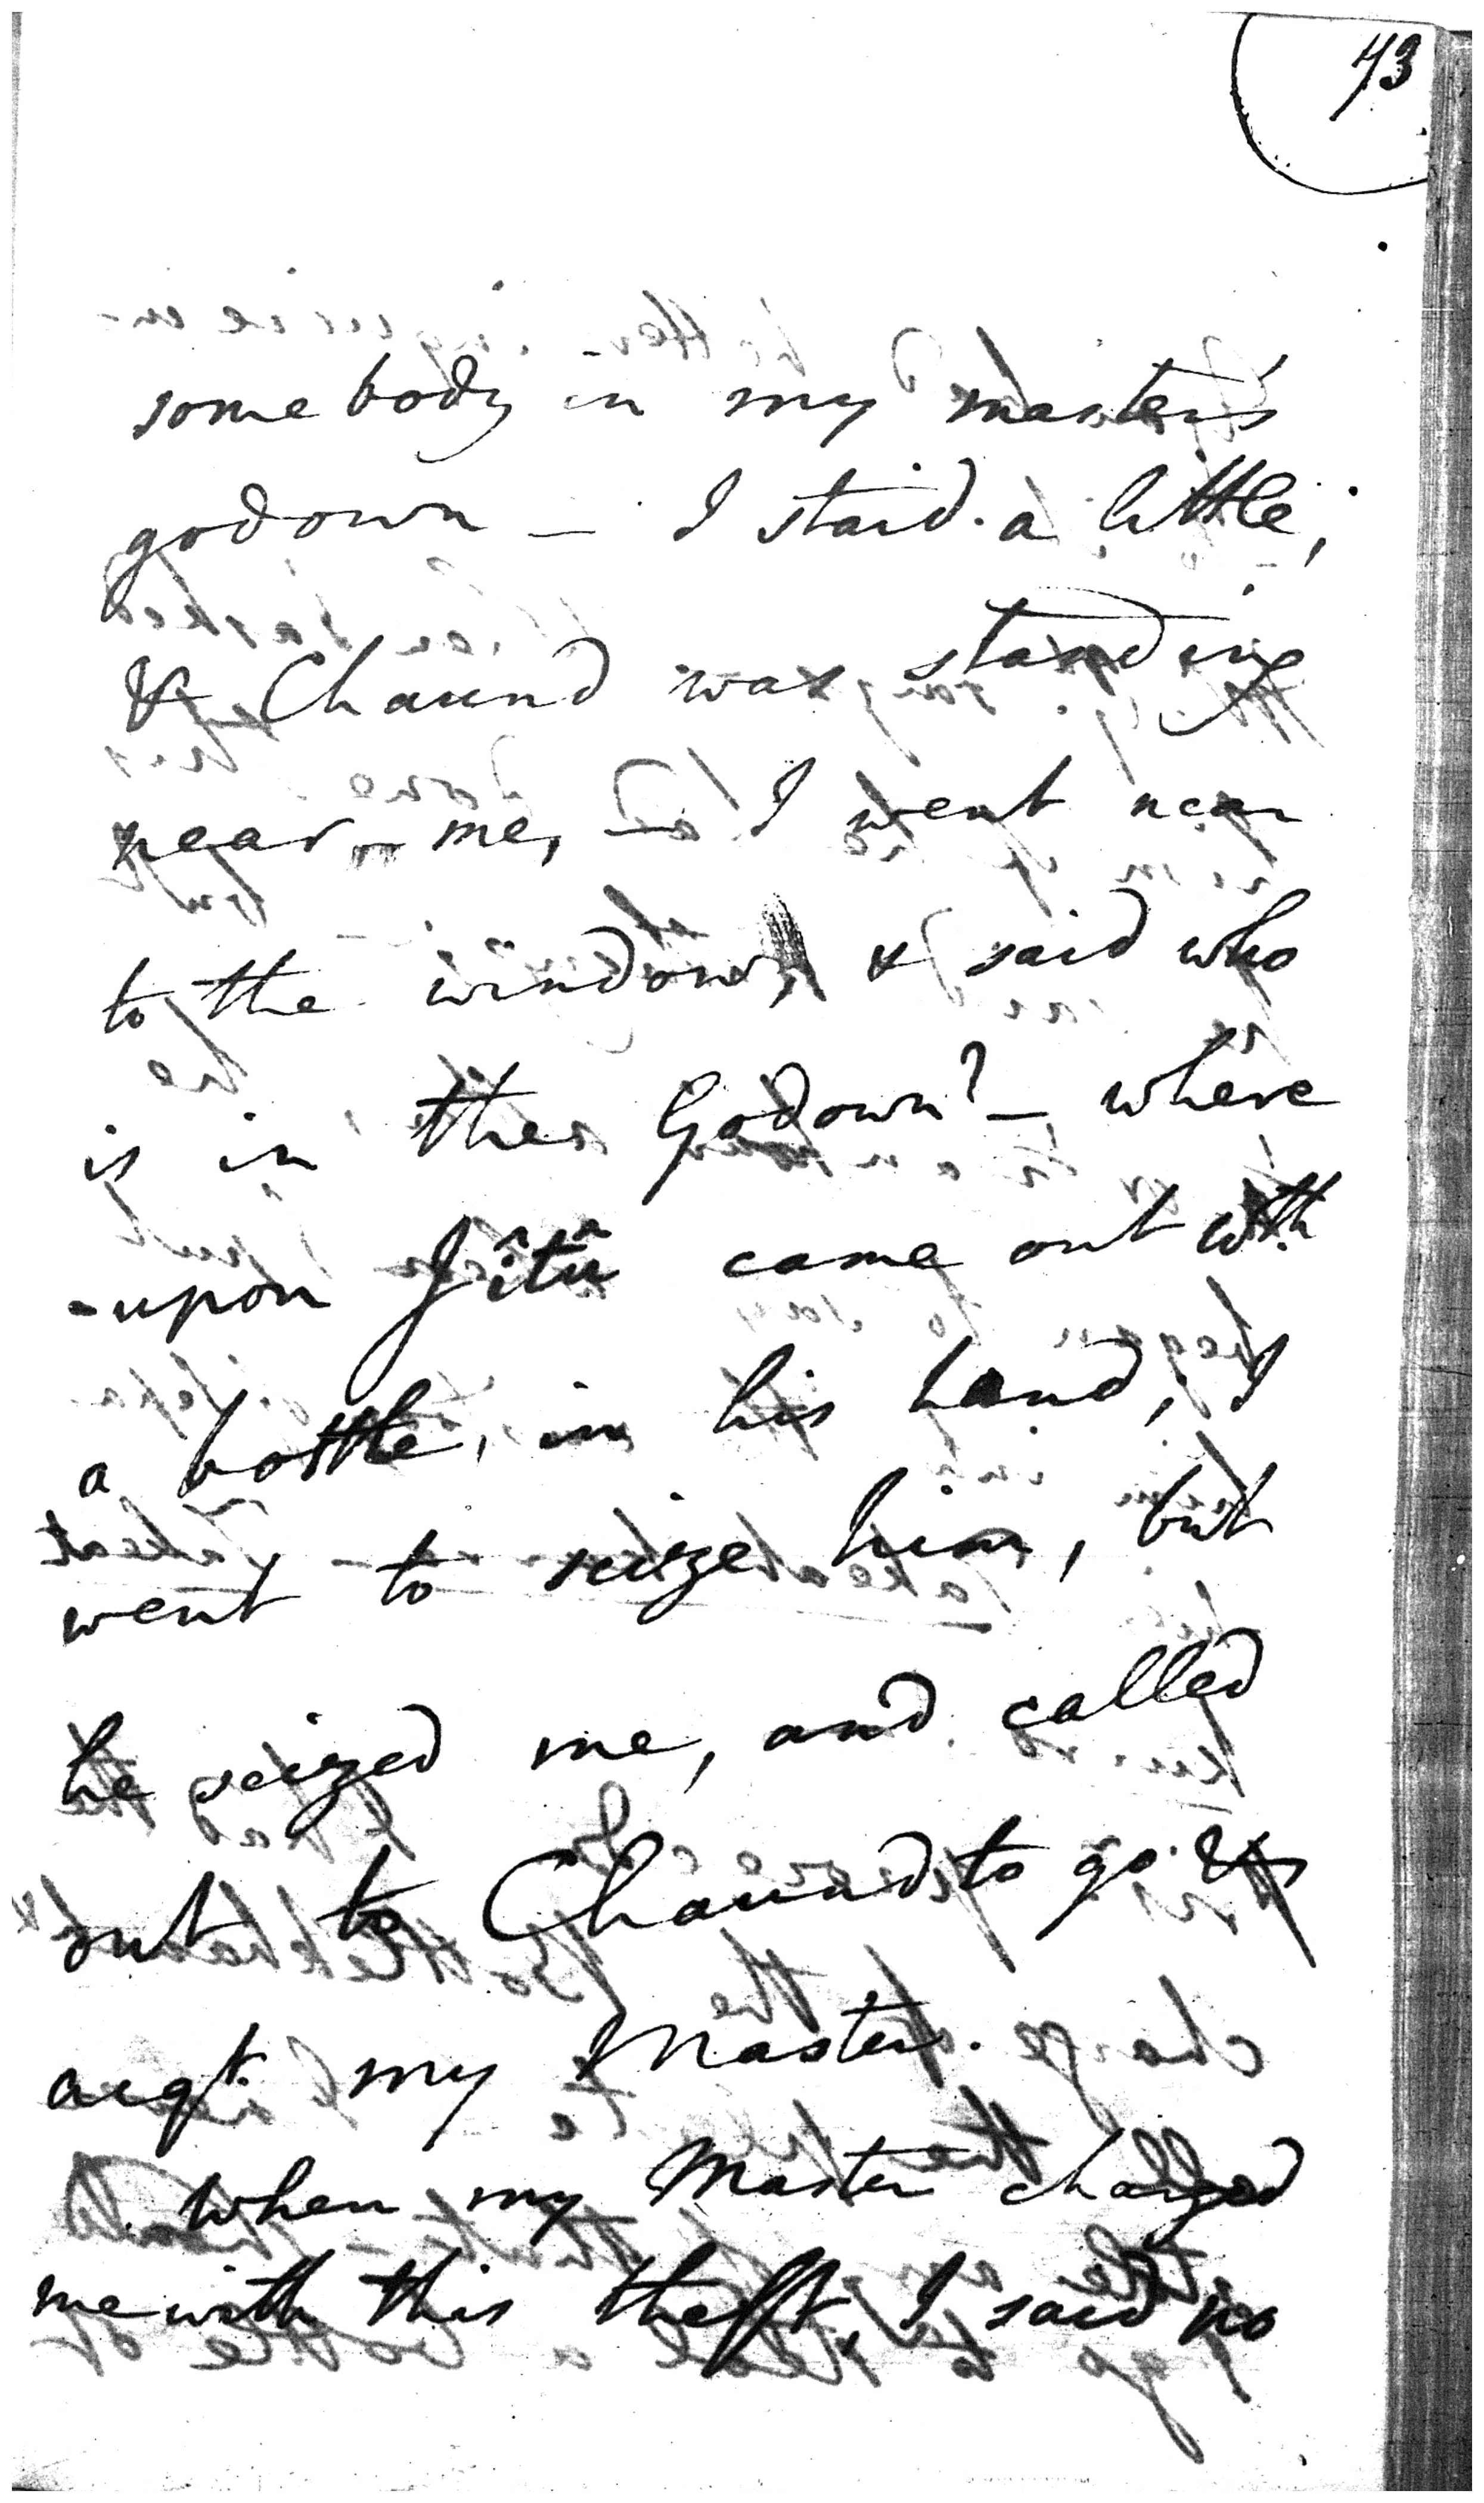 73
somebody in my masters
godown — I staid a little,
& Chaund was standing
near me, — I went near
to the window, & said who
is in the Godown? — where
-upon Jîtû came out with
a bottle, in his hand, I
went to seize him, but
he seized me, and called
out to Chaund to go &
acqt. my Master.
When my Master charged
me with this theft, I said no